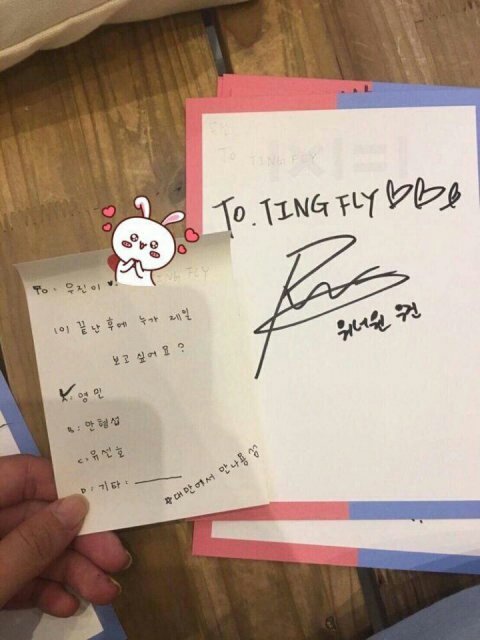 To TING FLY
TO. TING FLY♡♡
워너원 우진
To. 우진이
101 끝난 후에 누가 제일
보고싶어요?
A. 영민
B. 안형섭
C. 유선호
D. 기타: ______
☆대만에서